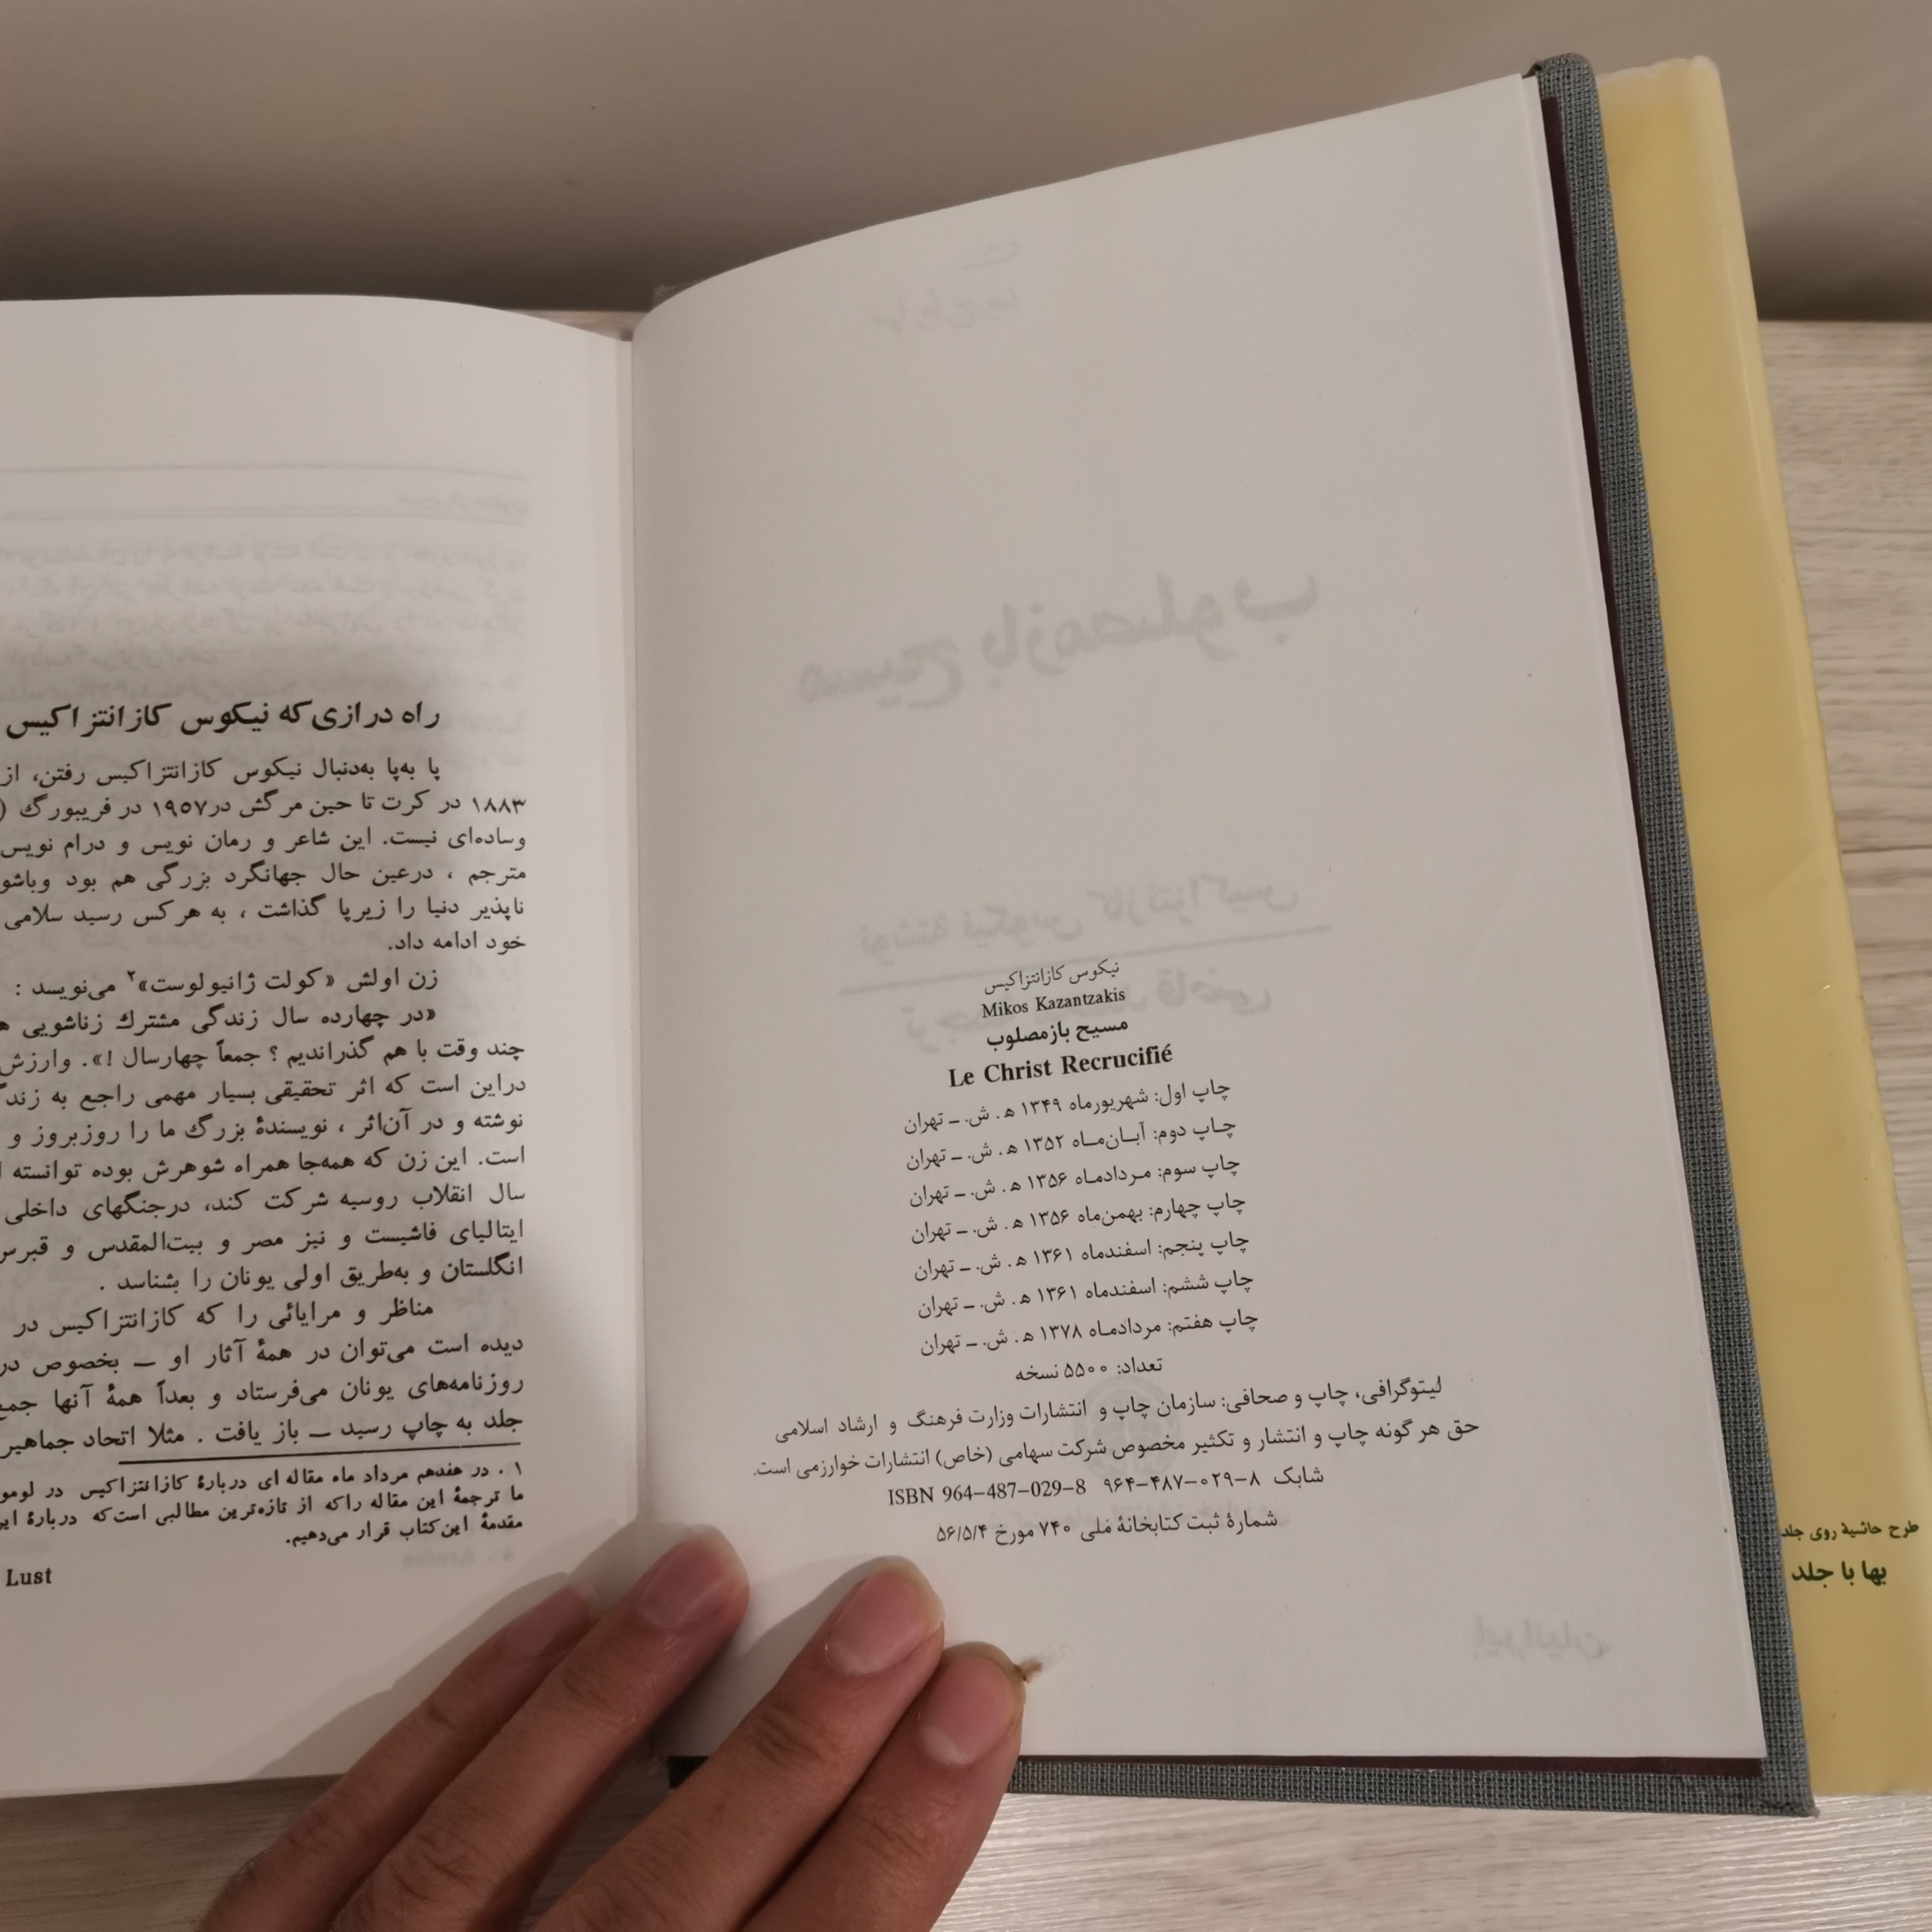 نیکوس کازانتزاکیس
Mikos Kazantzakis
مسیح بازمصلوب
Le Christ Recrucifié
چاپ اول: شهریورماه ۱۳۴۹ ه‍. ش. ــ تهران
چـاپ دوم: آبــان‌مــاه ۱۳۵۲ ه‍. ش. ــ تهران
چاپ سوم: مـردادمـاه ۱۳۵۶ ه‍. ش. ــ تهران
چاپ چهارم: بهمن‌ماه ۱۳۵۶ ه‍. ش. ــ تهران
چاپ پنجم: اسفندماه ۱۳۶۱ ه‍. ش. ــ تهران
چاپ ششم: اسفندماه ۱۳۶۱ ه‍. ش. ــ تهران
چاپ هفتم: مردادمـاه ۱۳۷۸ ه‍. ش. ــ تهران
تعداد: ۵۵۰۰ نسخه
لیتوگرافی، چاپ و صحافی: سازمان چاپ و انتشارات وزارت فرهنگ و ارشاد اسلامی
حق هر گونه چاپ و انتشار و تکثیر مخصوص شرکت سهامی (خاص) انتشارات خوارزمی است.
شابک ۸-۰۲۹-۴۸۷-۹۶۴ ISBN 964-487-029-8
شمارهٔ ثبت کتابخانهٔ ملی ۷۴۰ مورخ ۵۶/۵/۴
طرح حاشیهٔ روی جلد
بها با جلد
راه درازی‌که نیکوس کازانتزاکیس
پا به‌پا به‌دنبال نیکوس کازانتزاکیس رفتن، از
۱۸۸۳ در کرت تا حین مرگش در۱۹۵۷ در فریبورگ (
وساده‌ای نیست. این شاعر و رمان نویس و درام نویس
مترجم ، درعین حال جهانگرد بزرگی هم بود وباشو
ناپذیر دنیا را زیرپا گذاشت ، به هرکس رسید سلامی
خود ادامه داد.
زن اولش «کولت ژانیولوست»۲ می‌نویسد :
«در چهارده سال زندگی مشترك زناشویی
چند وقت با هم گذراندیم ؟ جمعاً چهارسال !». وارزش
دراین است که اثر تحقیقی بسیار مهمی راجع به زندگ
نوشته و در آن‌اثر ، نویسندهٔ بزرگ ما را روزبروز و
است. این زن که همه‌جا همراه شوهرش بوده توانسته
سال انقلاب روسیه شرکت کند، درجنگهای داخلی
ایتالیای فاشیست و نیز مصر و بیت‌المقدس و قبرس
انگلستان و به‌طریق اولی یونان را بشناسد .
مناظر و مرایائی را که کازانتزاکیس در
دیده است می‌توان در همهٔ آثار او ــ بخصوص در
روزنامه‌های یونان می‌فرستاد و بعداً همهٔ آنها جمع
جلد به چاپ رسید ــ باز یافت . مثلا اتحاد جماهیر
۱ . در هفدهم مرداد ماه مقاله ای دربارهٔ کازانتزاکیس در لومو
ما ترجمهٔ این مقاله راکه از تازه‌ترین مطالبی است‌که دربارهٔ این
مقدمهٔ این‌کتاب قرار می‌دهیم.
Lust